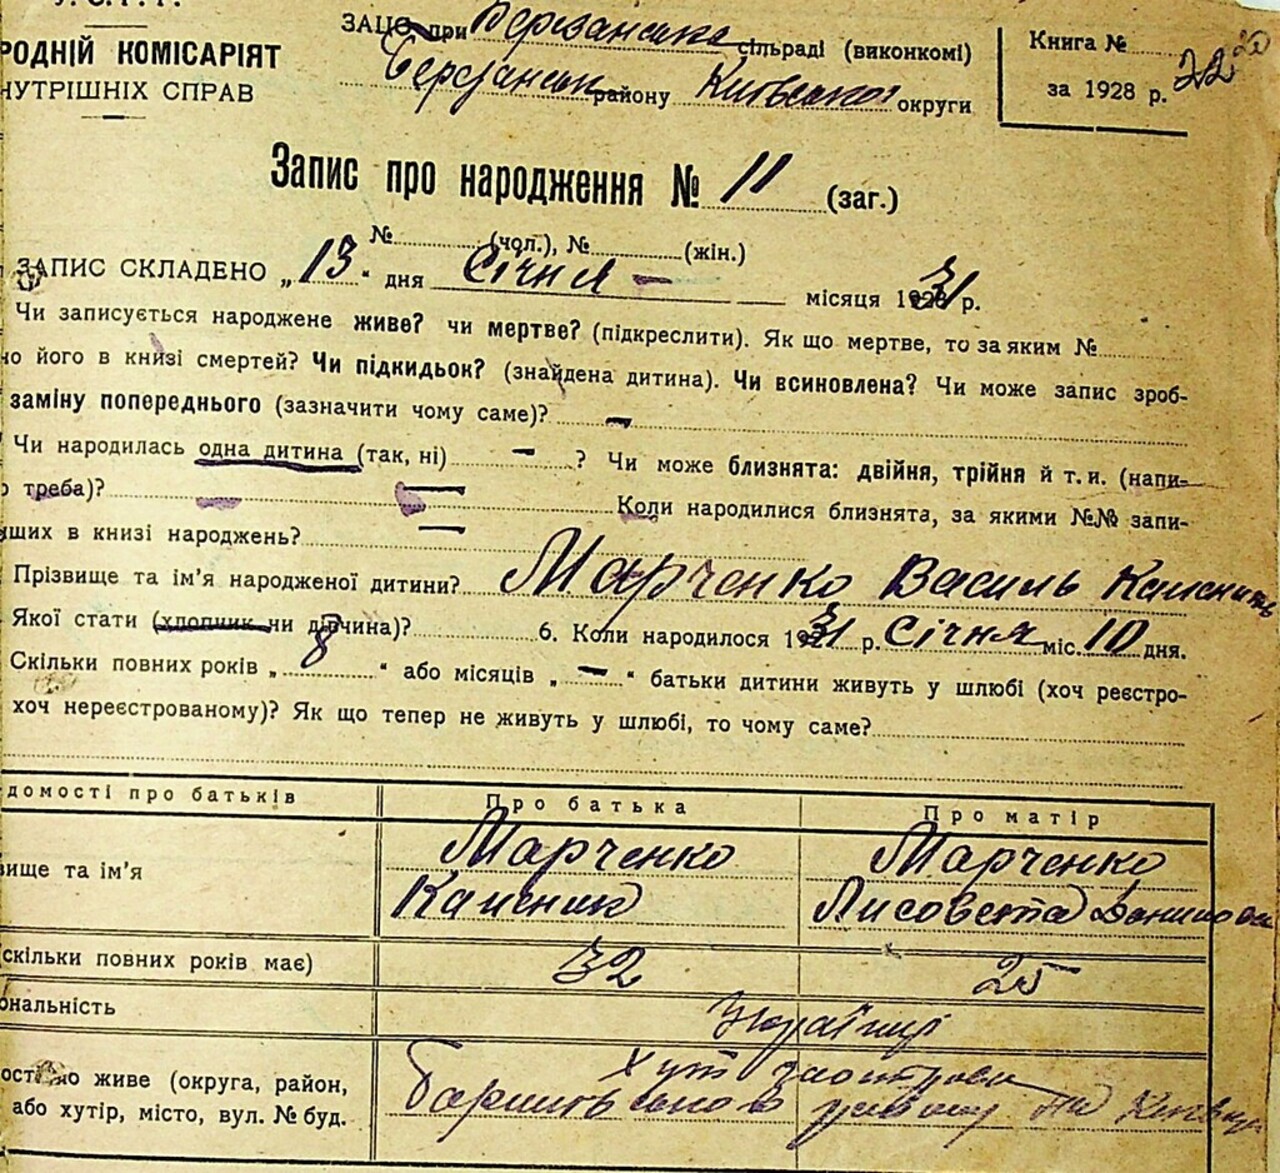 У.С.Р.Р.
РОДНІЙ КОМІСАРІЯТ
НУТРІШНІХ СПРАВ
ЗАЦС при Березанська сільраді (виконкомі)
Березанськ району Київської округи
Книга №
за 1928 р.
22
Запис про народження № 11 (заг.)
№ (чол.), № (жін.)
ЗАПИС СКЛАДЕНО „13“ дня Січня — місяця 1931 р.
Чи записується народжене живе? чи мертве? (підкреслити). Як що мертве, то за яким №
но його в книзі смертей? Чи підкидьок? (знайдена дитина). Чи всиновлена? Чи може запис зроб-
заміну попереднього (зазначити чому саме)? —
Чи народилась одна дитина (так, ні) — ? Чи може близнята: двійня, трійня й т. и. (напи-
о треба)? — Коли народилися близнята, за якими №№ запи-
нших в книзі народжень? —
Прізвище та ім'я народженої дитини? Марченко Василь
Якої стати (хлопчик чи дівчина)? 6. Коли народилося 1931 р. Січня міс. 10 дня.
Скільки повних років „ 8 “ або місяців „ — “ батьки дитини живуть у шлюбі (хоч реєстро-
хоч нереєстрованому)? Як що тепер не живуть у шлюбі, то чому саме?
домості про батьків Про батька Про матір
вище та ім'я Марченко Марченко
Лисовета
скільки повних років має) 32 25
ональність Українці
ості но живе (округа, район, Хут
або хутір, місто, вул. № буд.